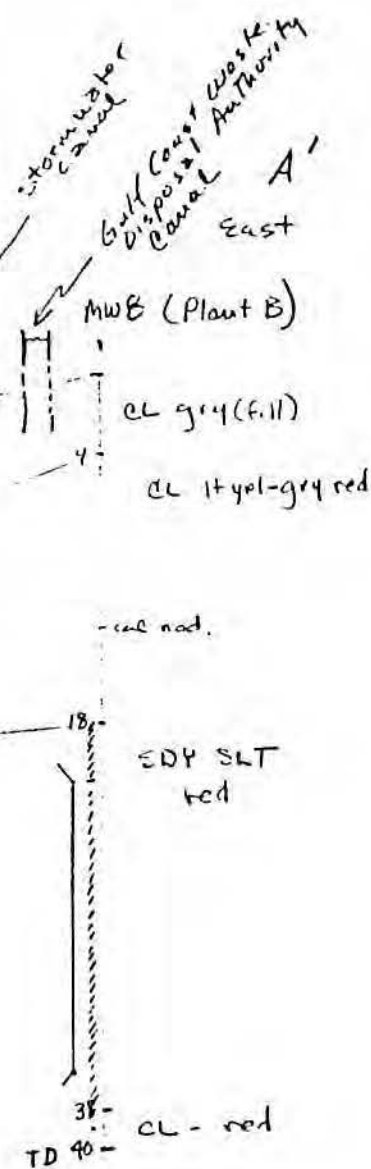 Stormwater
Canal
Gulf Coast Waste
Disposal Authority
Canal
A'
East
MW8 (Plant B)
CL gry (fill)
4
CL lt yel-gry red
nod.
18
SDY SLT
red
CL - red
TD 40